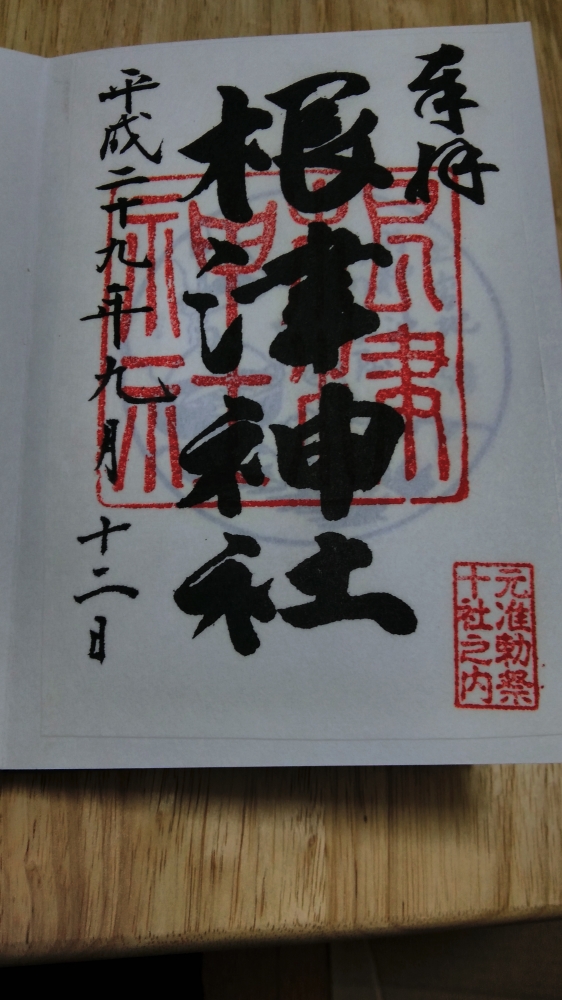 奉拝
元准勅祭
十社之内
根津神社
根津
神社
平成二十九年九月十二日